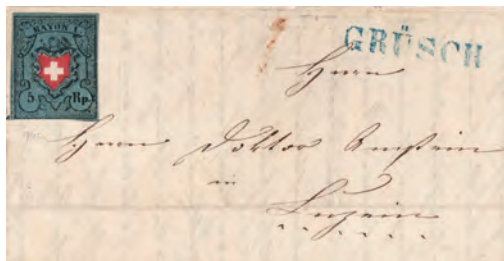 RAYON I.
5 Rp.
GRÜSCH
Herrn
Herrn Doktor Amstein
in
Luzein